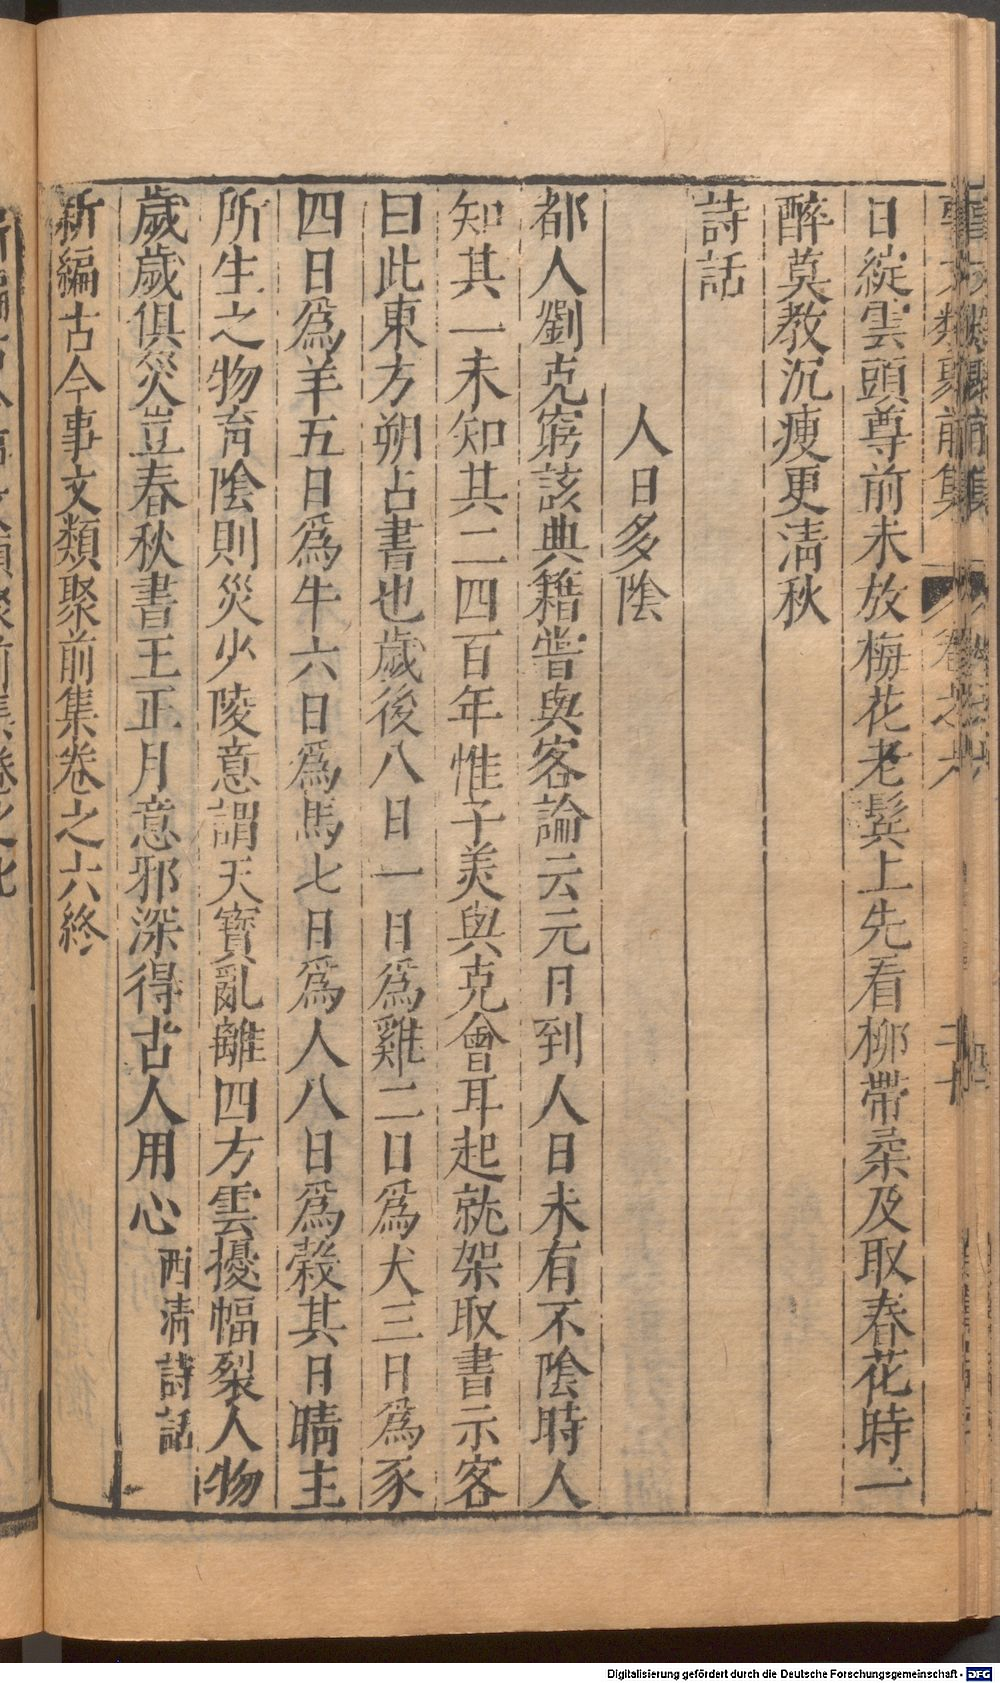 事文類聚前集 卷之六 二十
日綻雲頭尊前未放梅花老鬂上先看柳帶柔及取春花時一
醉莫教沉瘦更清秋
詩話
人日多陰
都人劉克窮該典籍嘗與客論云元日到人日未有不陰時人
知其一未知其二四百年惟子美與克會耳起就架取書示客
曰此東方朔占書也歲後八日一日爲雞二日爲犬三日爲豕
四日爲羊五日爲牛六日爲馬七日爲人八日爲榖其日晴主
所生之物育陰則災少陵意謂天寶亂離四方雲擾幅裂人物
歲歲俱災豈春秋書王正月意邪深得古人用心 西清詩話
新編古今事文類聚前集卷之六終
Digitalisierung gefördert durch die Deutsche Forschungsgemeinschaft - DFG